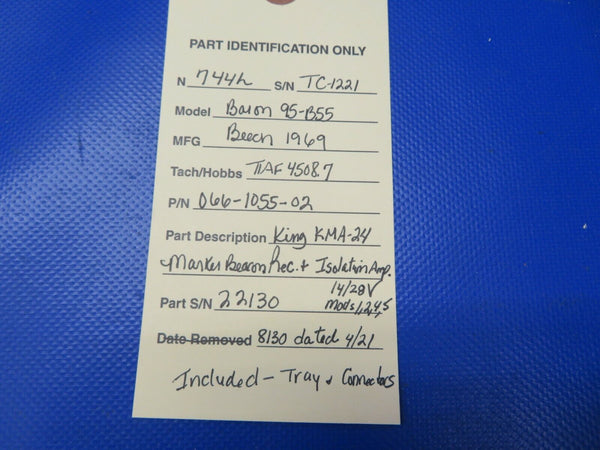 PART IDENTIFICATION ONLY
N 744h S/N TC-1221
Model Baron 95-B55
MFG Beech 1969
Tach/Hobbs TTAF 4508.7
P/N 066-1055-02
Part Description King KMA-24
Marker Beacon Rec. + Isolation Amp.
14/28V
Part S/N 22130 Mods 1,2,4,5
Date Removed 8130 dated 4/21
Included - Tray & Connectors